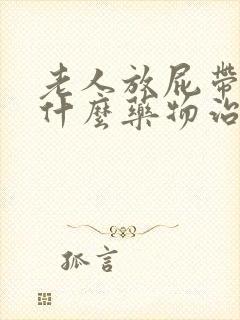 老人放屁帶
什麼藥物治
孤言